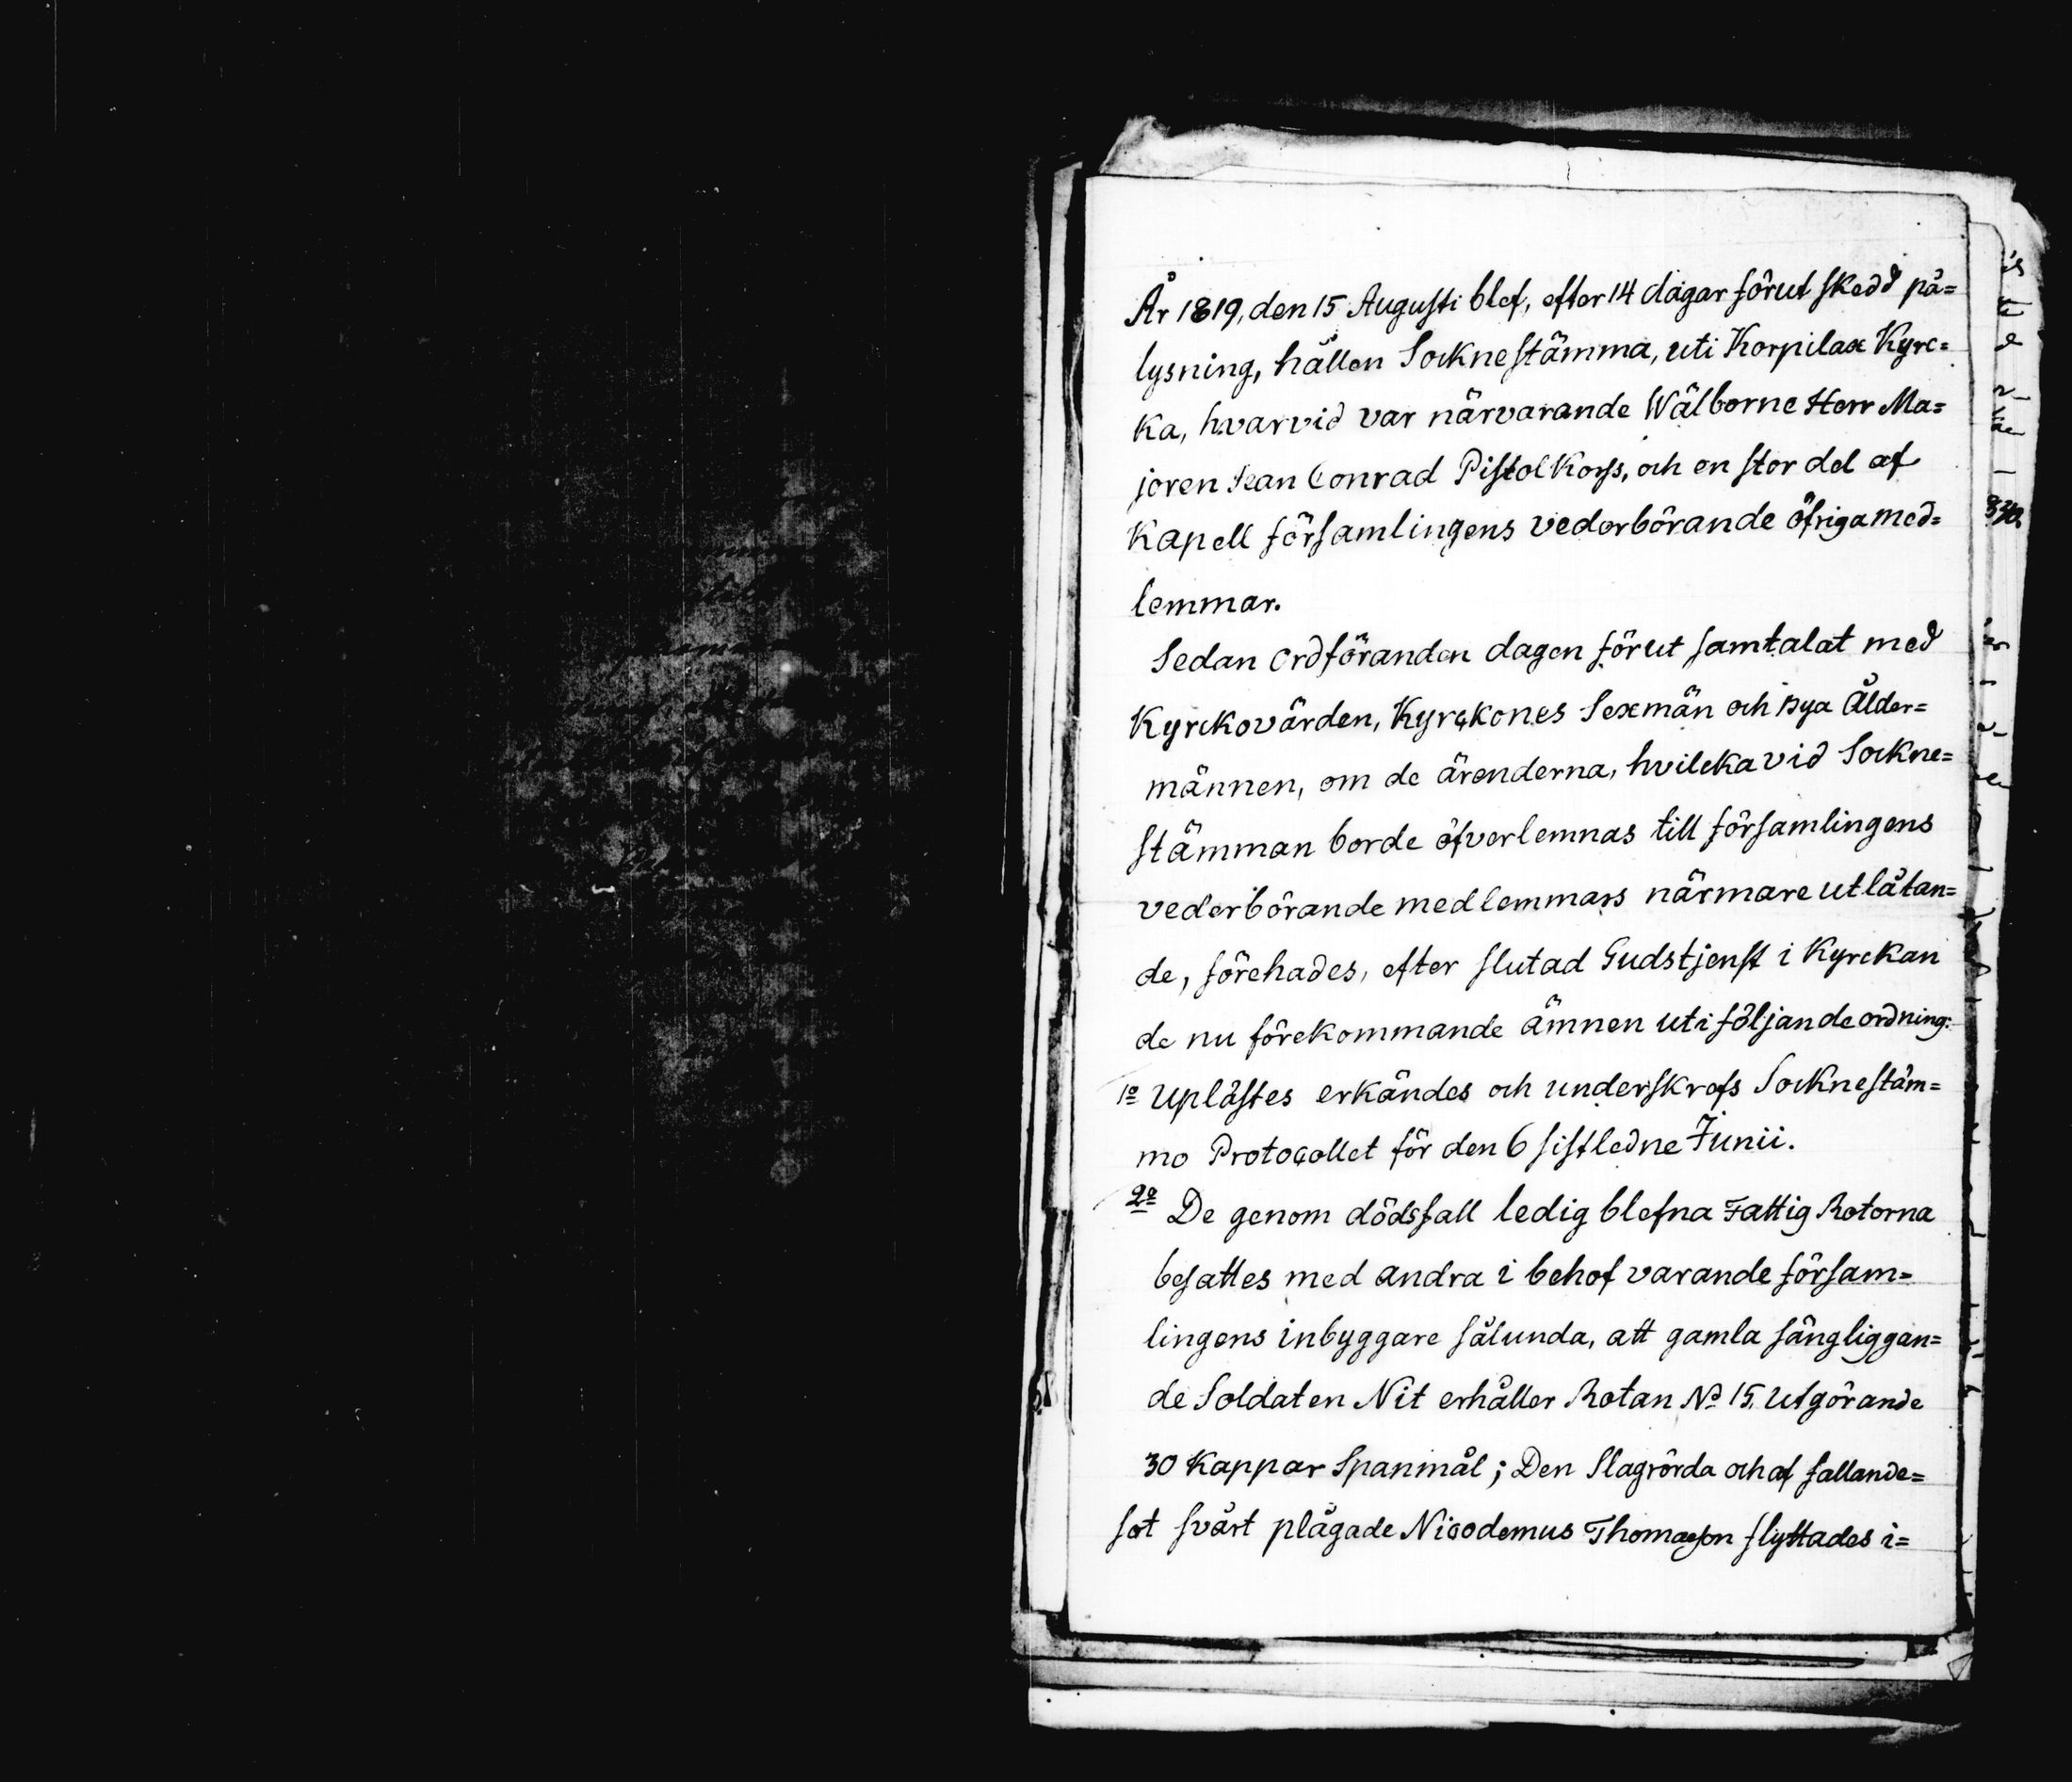 År 1819, den 15 Augusti blef, efter 14 dagar förut skedd på=
lysning, hållen Socknestämma, uti Korpilax Kyrc=
ka, hvarvid var närvarande Wälborne Herr Ma=
joren Jean Conrad Pistolkors, och en stor del af
Kapell församlingens vederbörande öfriga med=
lemmar.
Sedan Ordföranden dagen förut samtalat med
Kyrckovärden, Kyrckones Sexmän och nya Ålder=
männen, om de ärenderna, hvilcka vid Sockne=
stämman borde öfverlemnas till församlingens
vederbörande medlemmars närmare utlåtan=
de, förehades, efter slutad Gudstjenst i Kyrckan
de nu förekommande ämnen uti följande ordning:
1º Uplästes erkändes och underskrefs Socknestäm=
mo Protocollet för den 6 sistledne Junii.
2º De genom dödsfall ledig blefna Fattig Rotorna
besattes med andra i behof varande försam=
lingens inbyggare sålunda, att gamla sängliggan=
de Soldaten Nit erhåller Rotan Nº 15, utgörande
30 Kappar Spanmål; Den Slagrörda och af fallande=
sot svårt plågade Nicodemus Thomasson flyttades i=